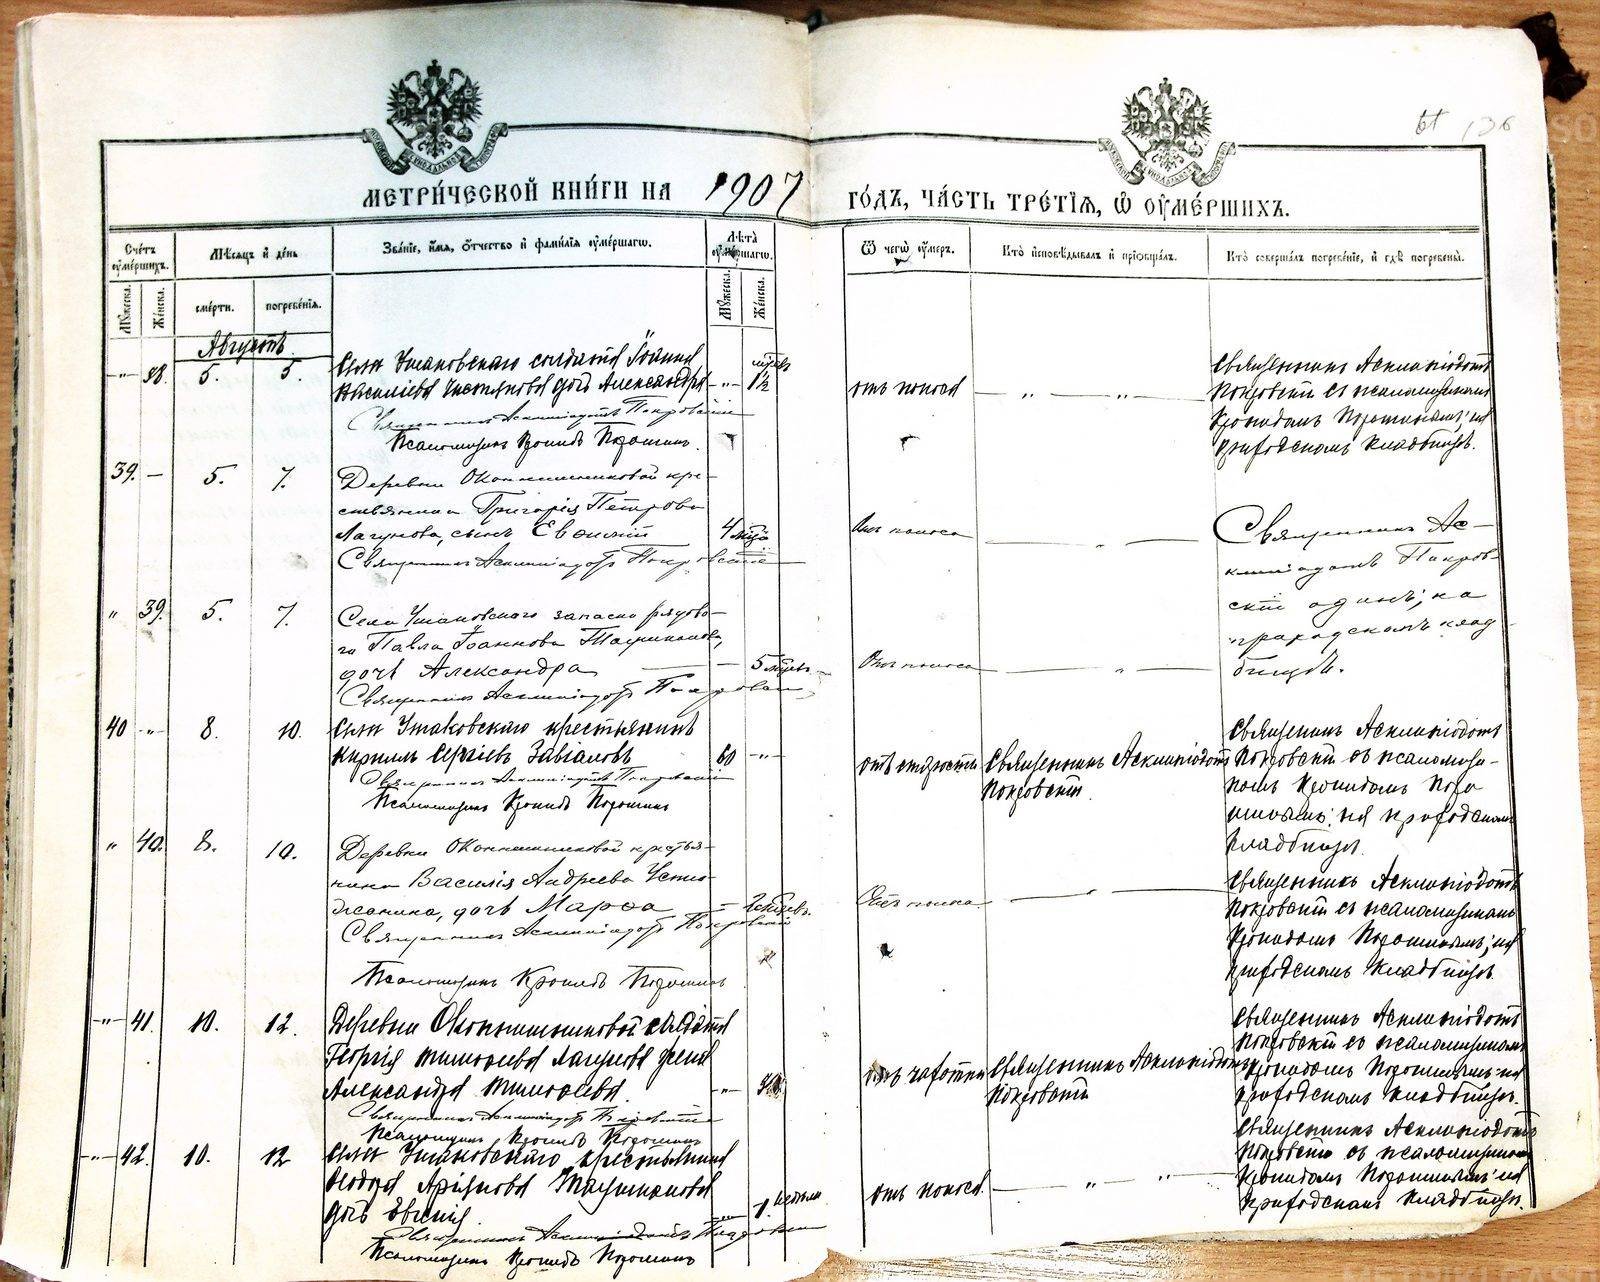 МЕТРИ́ЧЕСКОЙ КНИ́ГИ НА 1907 ГО́ДЪ, ЧА́СТЬ ТРЕ́ТІЯ, Ѽ ОУМЕ́РШИХЪ.
136
Сче́тъ оуме́ршихъ.
Мѣсяцъ и день
Зва́ніе, и́мя, о́тчество и фами́лія оуме́ршагѡ.
Лѣта оуме́ршагѡ.
Ѿ чегѡ̀ оу́меръ.
Кто̀ исповѣ́дывалъ и пріобща́лъ.
Кто̀ соверша́лъ погребе́ніе, и гдѣ̀ погребены̀.
Мꙋжеска.
Же́нска.
сме́рти.
погребе́нія.
Мꙋжеска.
Же́нска.
Августъ.
-"- 38. 5. 5.
Села Ушаковскаго солдата Іоанна
Василіева дочь Александра -"- 1½
Священникъ Асклипіодотъ Покровскій
Псаломщикъ Кронидъ Порошинъ.
отъ поноса
Священникъ Асклипіодотъ
Покровскій съ псаломщикомъ
Кронидомъ Порошинымъ; на
приходскомъ кладбищѣ.
39. - 5. 7.
Деревни кре-
стьянина Григорія Петрова
Лагунова, сынъ Евѳимій 4 мѣсяца
Священникъ Асклипіодотъ Покровскій
Отъ поноса
Священникъ Ас-
клипіодотъ Покров-
скій одинъ; на
приходскомъ клад-
бищѣ.
" 39. 5. 7.
Села Ушаковскаго запаснаго рядово-
го Павла Іоаннова
дочь Александра - 5 мѣсяцевъ
Священникъ Асклипіодотъ Покровскій
Отъ поноса
40 -"- 8. 10.
Села Ушаковскаго крестьянинъ
Кириллъ Сергіевъ Завьяловъ 60 -"-
Священникъ Асклипіодотъ Покровскій
Псаломщикъ Кронидъ Порошинъ
отъ старости
Священникъ Асклипіодотъ
Покровскій.
Священникъ Асклипіодотъ
Покровскій съ псаломщи-
комъ Кронидомъ Поро-
шинымъ; на приходскомъ
кладбищѣ.
" 40. 8. 10.
Деревни крестья-
нина Василія Андреева Устю-
жанина, дочь Марѳа - 2 мѣсяцевъ
Священникъ Асклипіодотъ Покровскій
Псаломщикъ Кронидъ Порошинъ
Отъ поноса
Священникъ Асклипіодотъ
Покровскій съ псаломщикомъ
Кронидомъ Порошинымъ; на
приходскомъ кладбищѣ.
-"- 41. 10. 12.
Деревни солдата
Георгія Тимоѳеева Лагунова жена
Александра Тимоѳеева. -"-
Священникъ Асклипіодотъ Покровскій
Псаломщикъ Кронидъ Порошинъ
отъ чахотки
Священникъ Асклипіодотъ
Покровскій
Священникъ Асклипіодотъ
Покровскій съ псаломщикомъ
Кронидомъ Порошинымъ; на
приходскомъ кладбищѣ.
-"- 42. 10. 12
Села Ушаковскаго крестьянина
Ѳеодора
дочь Евгенія. 1. недѣли
Священникъ Асклипіодотъ Покровскій
Псаломщикъ Кронидъ Порошинъ
отъ поноса.
Священникъ Асклипіодотъ
Покровскій съ псаломщикомъ
Кронидомъ Порошинымъ; на
приходскомъ кладбищѣ.